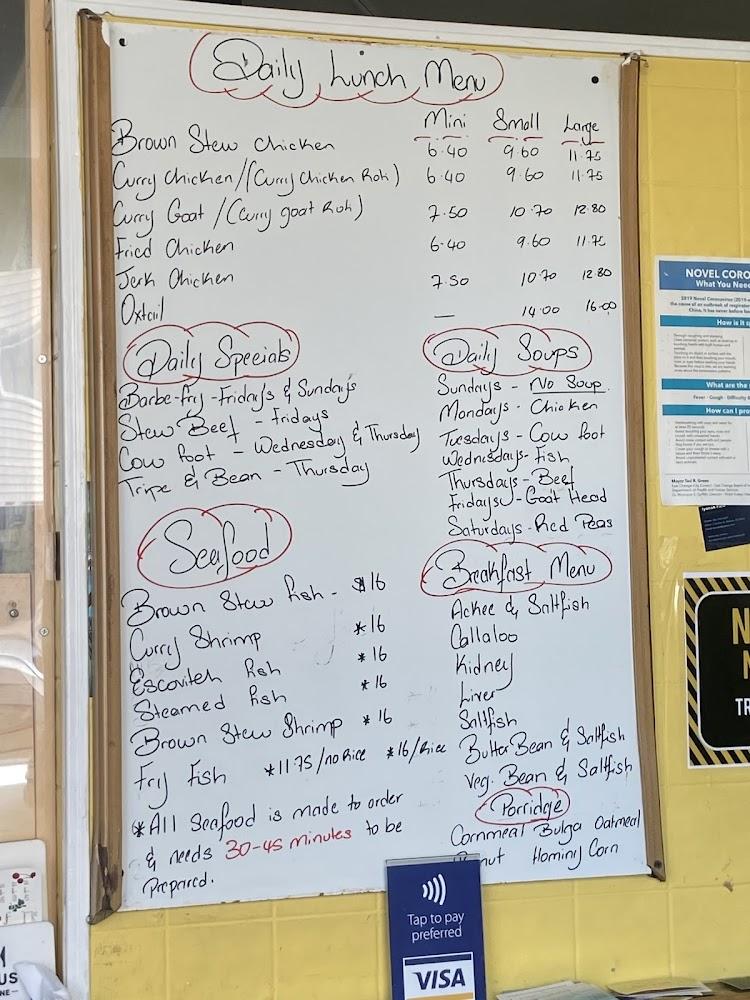 Daily Lunch Menu
Mini Small Large
Brown Stew Chicken 6.40 9.60 11.75
Curry Chicken/(Curry Chicken Roti) 6.40 9.60 11.75
Curry Goat/(Curry goat Roti) 7.50 10.70 12.80
Fried Chicken 6.40 9.60 11.75
Jerk Chicken 7.50 10.70 12.80
Oxtail — 14.00 16.00
Daily Specials
Barbe-fry - Fridays & Sundays
Stew Beef - Fridays
Cow foot - Wednesday & Thursday
Tripe & Bean - Thursday
Daily Soups
Sundays - No Soup.
Mondays - Chicken
Tuesdays - Cow foot
Wednesdays - fish
Thursdays - Beef
Fridays - Goat Head
Saturdays - Red Peas
Seafood
Brown Stew fish - $16
Curry Shrimp *16
Escovitch fish *16
Steamed fish *16
Brown Stew Shrimp *16
Fry Fish *11.75/no Rice *16/Rice
*All Seafood is made to order
& needs 30-45 minutes to be
Prepared.
Breakfast Menu
Ackee & Saltfish
Callaloo
Kidney
Liver
Saltfish
Butter Bean & Saltfish
Veg. Bean & Saltfish
Porridge
Cornmeal Bulga Oatmeal
Hominy Corn
Tap to pay
preferred
VISA
NOVEL CORO
What You Nee
How is it
What are the
How can I pro